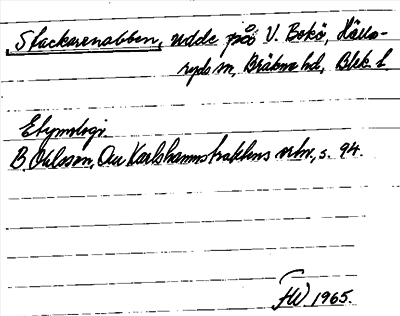 Stackarenabben, udde på V. Bokö, Hällaryds sn, Bräkne hd, Blek. l.
Etymologi
B. Ohlsson, Om Karlshamnstraktens nbn., s. 94.
HW 1965.